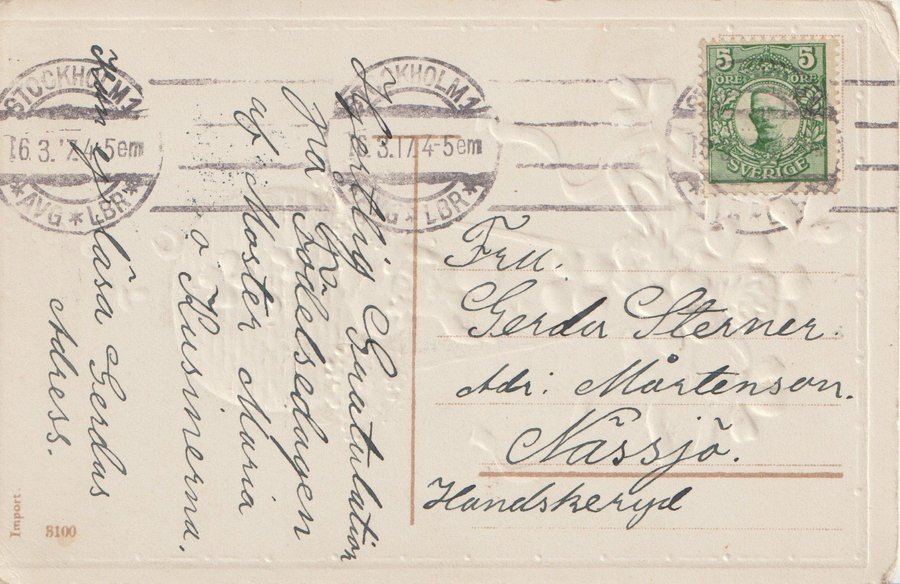 STOCKHOLM 1
16.3.17.4-5em
AVG * LBR *
STOCKHOLM 1
16.3.17.4-5em
AVG * LBR *
5 5
ÖRE ÖRE
SVERIGE
Hjertlig Gratulation
på Födelsedagen
af Moster Maria
o Kusinerna.
läsa Gerdas
Adress.
Fru.
Gerda Sterner.
Adr: Mårtenson.
Nässjö.
Handskeryd
Import.
3100